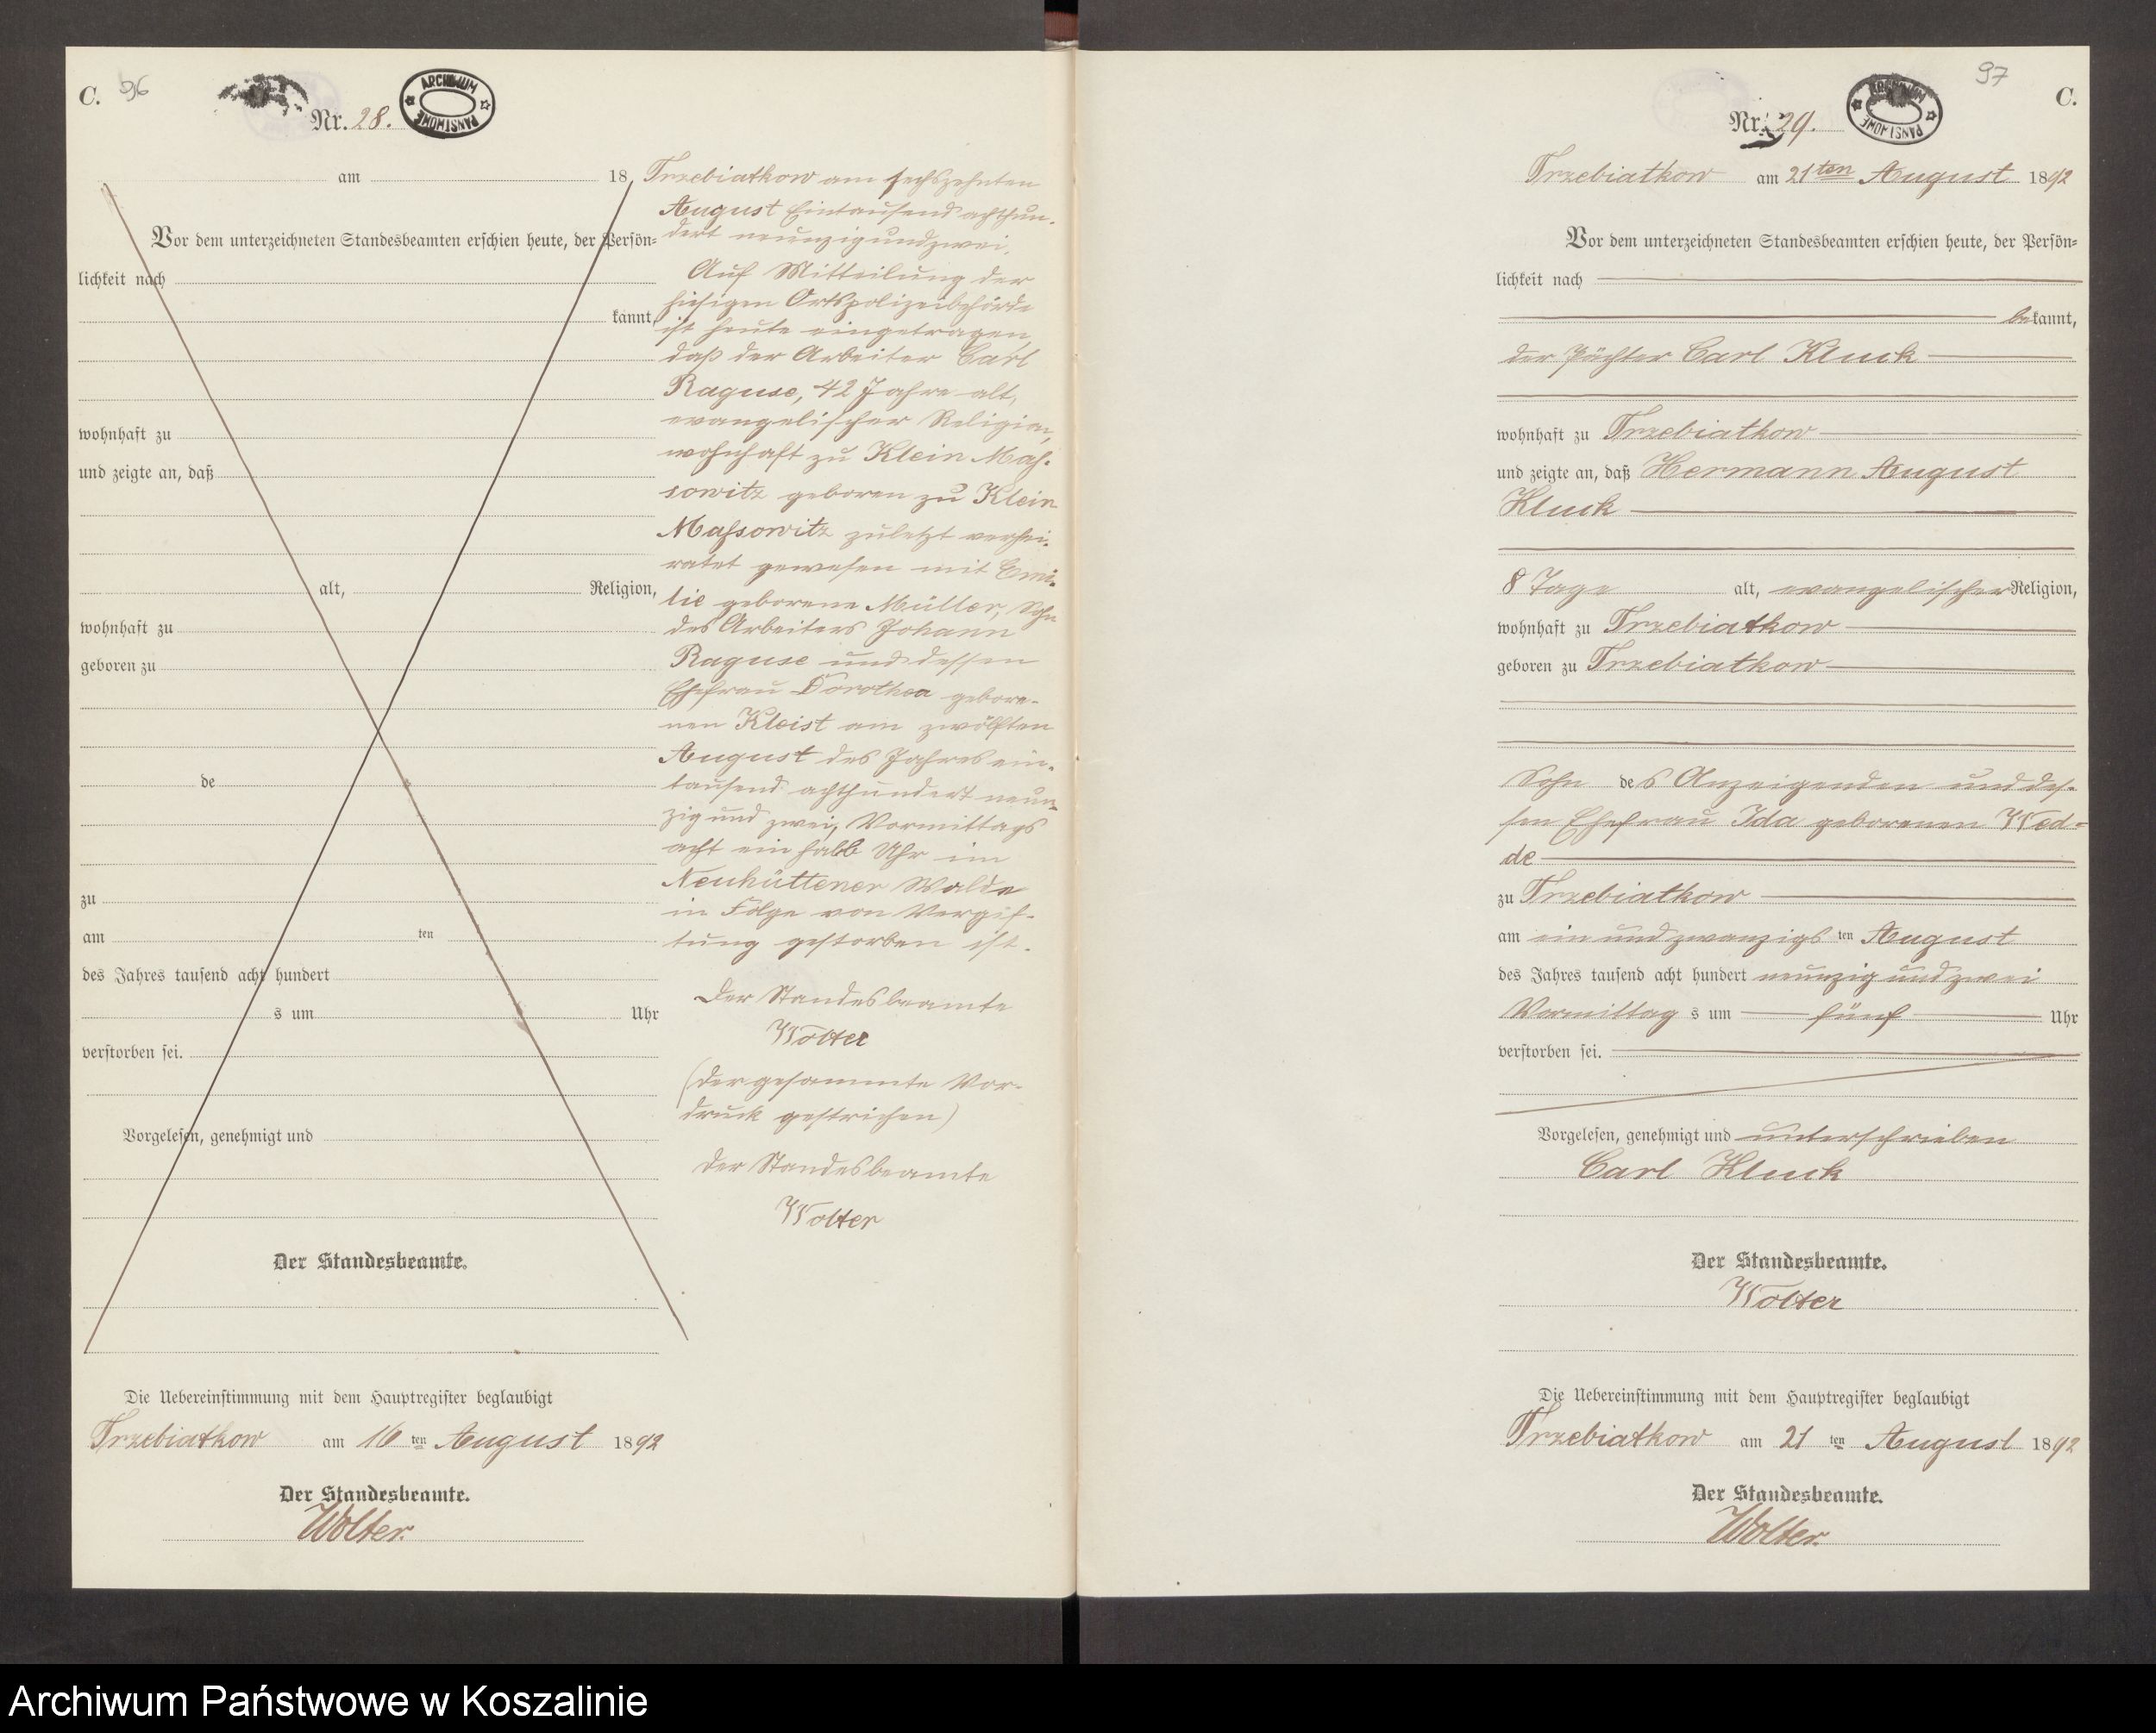 C. 96
ARCHIWUM PAŃSTWOWE
Nr. 28.
am 18
Vor dem unterzeichneten Standesbeamten erschien heute, der Persön=
lichkeit nach
kannt,
wohnhaft zu
und zeigte an, daß
alt, Religion,
wohnhaft zu
geboren zu
de
zu
am ten
des Jahres tausend acht hundert
s um Uhr
verstorben sei.
Vorgelesen, genehmigt und
Der Standesbeamte.
Die Uebereinstimmung mit dem Hauptregister beglaubigt
Trzebiatkow am 16 ten August 1892
Der Standesbeamte.
Wolter.
Trzebiatkow am sechszehnten
August Eintausend achthun-
dert neunzigundzwei.
Auf Mitteilung der
hiesigen Ortspolizeibehörde
ist heute eingetragen,
daß der Arbeiter Carl
Raguse, 42 Jahre alt,
evangelischer Religion,
wohnhaft zu Klein Mas-
sowitz geboren zu Klein
Massowitz zuletzt verhei-
ratet gewesen mit Emi-
lie geborene Müller, Sohn
des Arbeiters Johann
Raguse und dessen
Ehefrau Dorothea gebore-
nen Kleist am zwölften
August des Jahres ein-
tausend achthundert neun-
zig und zwei, Vormittags
acht ein halb Uhr im
Neuhüttener Walde
in Folge von Vergif-
tung gestorben ist.
Der Standesbeamte
Wolter
(der gesammte Vor-
druck gestrichen)
Der Standesbeamte
Wolter
97
C.
ARCHIWUM PAŃSTWOWE
Nr. 29.
Trzebiatkow am 21ten August 1892
Vor dem unterzeichneten Standesbeamten erschien heute, der Persön=
lichkeit nach
bekannt,
der Pächter Carl Kluck
wohnhaft zu Trzebiatkow
und zeigte an, daß Hermann August
Kluck
8 Tage alt, evangelischer Religion,
wohnhaft zu Trzebiatkow
geboren zu Trzebiatkow
Sohn des Anzeigenden und des-
sen Ehefrau Ida geborenen Wed=
de
zu Trzebiatkow
am ein und zwanzigs ten August
des Jahres tausend acht hundert neunzig und zwei
Vormittag s um fünf Uhr
verstorben sei.
Vorgelesen, genehmigt und unterschrieben
Carl Kluck
Der Standesbeamte.
Wolter
Die Uebereinstimmung mit dem Hauptregister beglaubigt
Trzebiatkow am 21 ten August 1892
Der Standesbeamte.
Wolter.
Archiwum Państwowe w Koszalinie